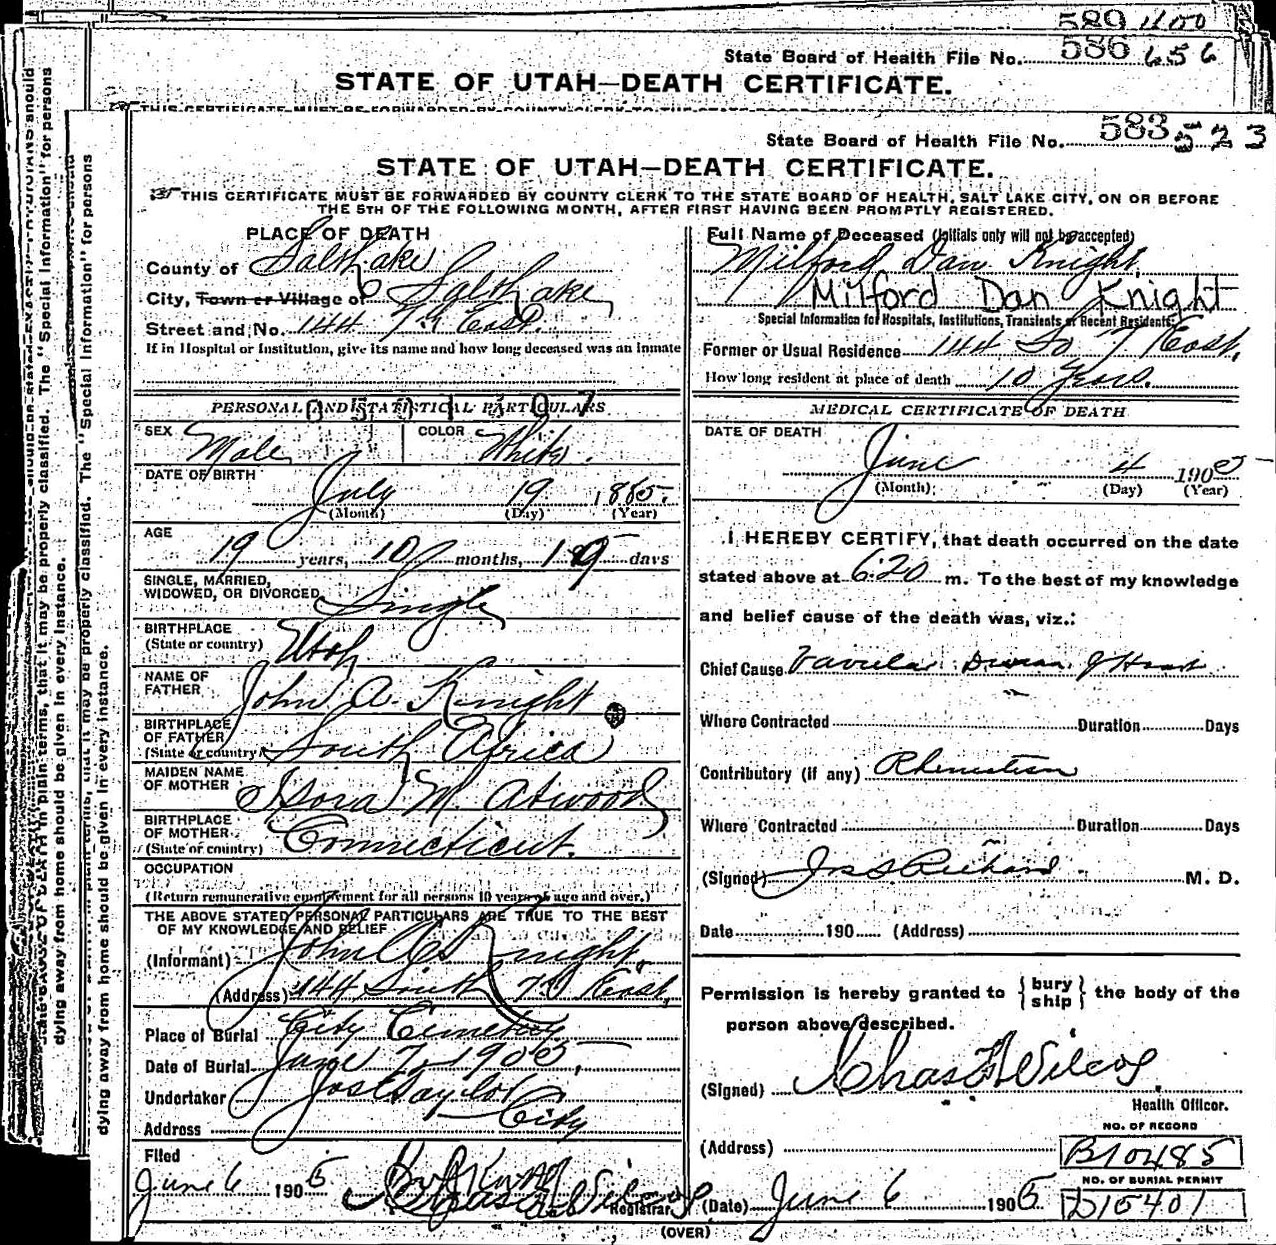 589 1100
State Board of Health File No. 586 656
STATE OF UTAH—DEATH CERTIFICATE.
THIS CERTIFICATE MUST BE FORWARDED BY COUNTY CLERK TO THE STATE BOARD
State Board of Health File No. 583 523
STATE OF UTAH—DEATH CERTIFICATE.
THIS CERTIFICATE MUST BE FORWARDED BY COUNTY CLERK TO THE STATE BOARD OF HEALTH, SALT LAKE CITY, ON OR BEFORE
THE 5TH OF THE FOLLOWING MONTH, AFTER FIRST HAVING BEEN PROMPTLY REGISTERED.
PLACE OF DEATH
County of Salt Lake
City, Town or Village of Salt Lake
Street and No. 144 7th East.
If in Hospital or Institution, give its name and how long deceased was an inmate
PERSONAL AND STATISTICAL PARTICULARS
0501507
SEX Male COLOR White.
DATE OF BIRTH
July 19, 1885.
(Month) (Day) (Year)
AGE
19 years, 10 months, 15 days
SINGLE, MARRIED,
WIDOWED, OR DIVORCED Single
BIRTHPLACE
(State or country) Utah
NAME OF
FATHER John A. Knight
BIRTHPLACE
OF FATHER
(State or country) South Africa
MAIDEN NAME
OF MOTHER M. Atwood
BIRTHPLACE
OF MOTHER
(State or country) Connecticut.
OCCUPATION
(Return remunerative employment for all persons 10 years of age and over.)
THE ABOVE STATED PERSONAL PARTICULARS ARE TRUE TO THE BEST
OF MY KNOWLEDGE AND BELIEF
(Informant) John A Knight,
(Address) 144 South 7th East,
Place of Burial City Cemetery
Date of Burial June 7, 1905,
Undertaker Jos E Taylor
Address City
Filed
June 6 1905 Chas Wilcox Registrar
Full Name of Deceased (Initials only will not be accepted)
Milford Dan Knight,
Milford Dan Knight
Special Information for Hospitals, Institutions, Transients or Recent Residents:
Former or Usual Residence 144 So 7 East,
How long resident at place of death 10 Years.
MEDICAL CERTIFICATE OF DEATH
DATE OF DEATH
June 4 1905
(Month) (Day) (Year)
I HEREBY CERTIFY, that death occurred on the date
stated above at 6:20 m. To the best of my knowledge
and belief cause of the death was, viz.:
Chief Cause Heart
Where Contracted Duration Days
Contributory (if any) Rheumatism
Where Contracted Duration Days
(Signed) Jos S Richards M. D.
Date 190 (Address)
Permission is hereby granted to { bury ship } the body of the
person above described.
(Signed) Chas F Wilcox
Health Officer.
(Address)
NO. OF RECORD
B10485
NO. OF BURIAL PERMIT
D15401
(Date) June 6 1905
(OVER)
properly classified. The "Special Information" for persons
dying away from home should be given in every instance.